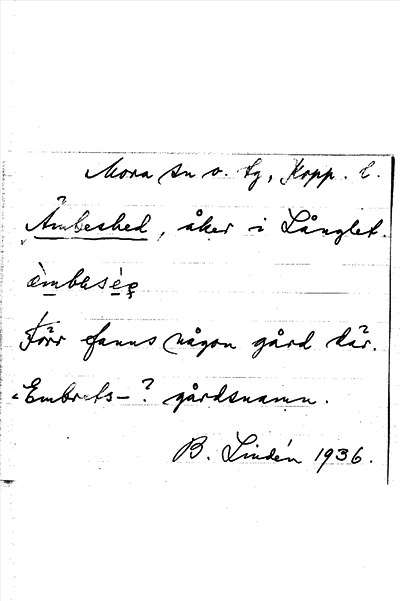 Mora sn o. tg, Kopp. l.
Ämbeshed, åker i Långlet.
Förr fanns någon gård där.
Embrets-? gårdsnamn.
B. Lindén 1936.